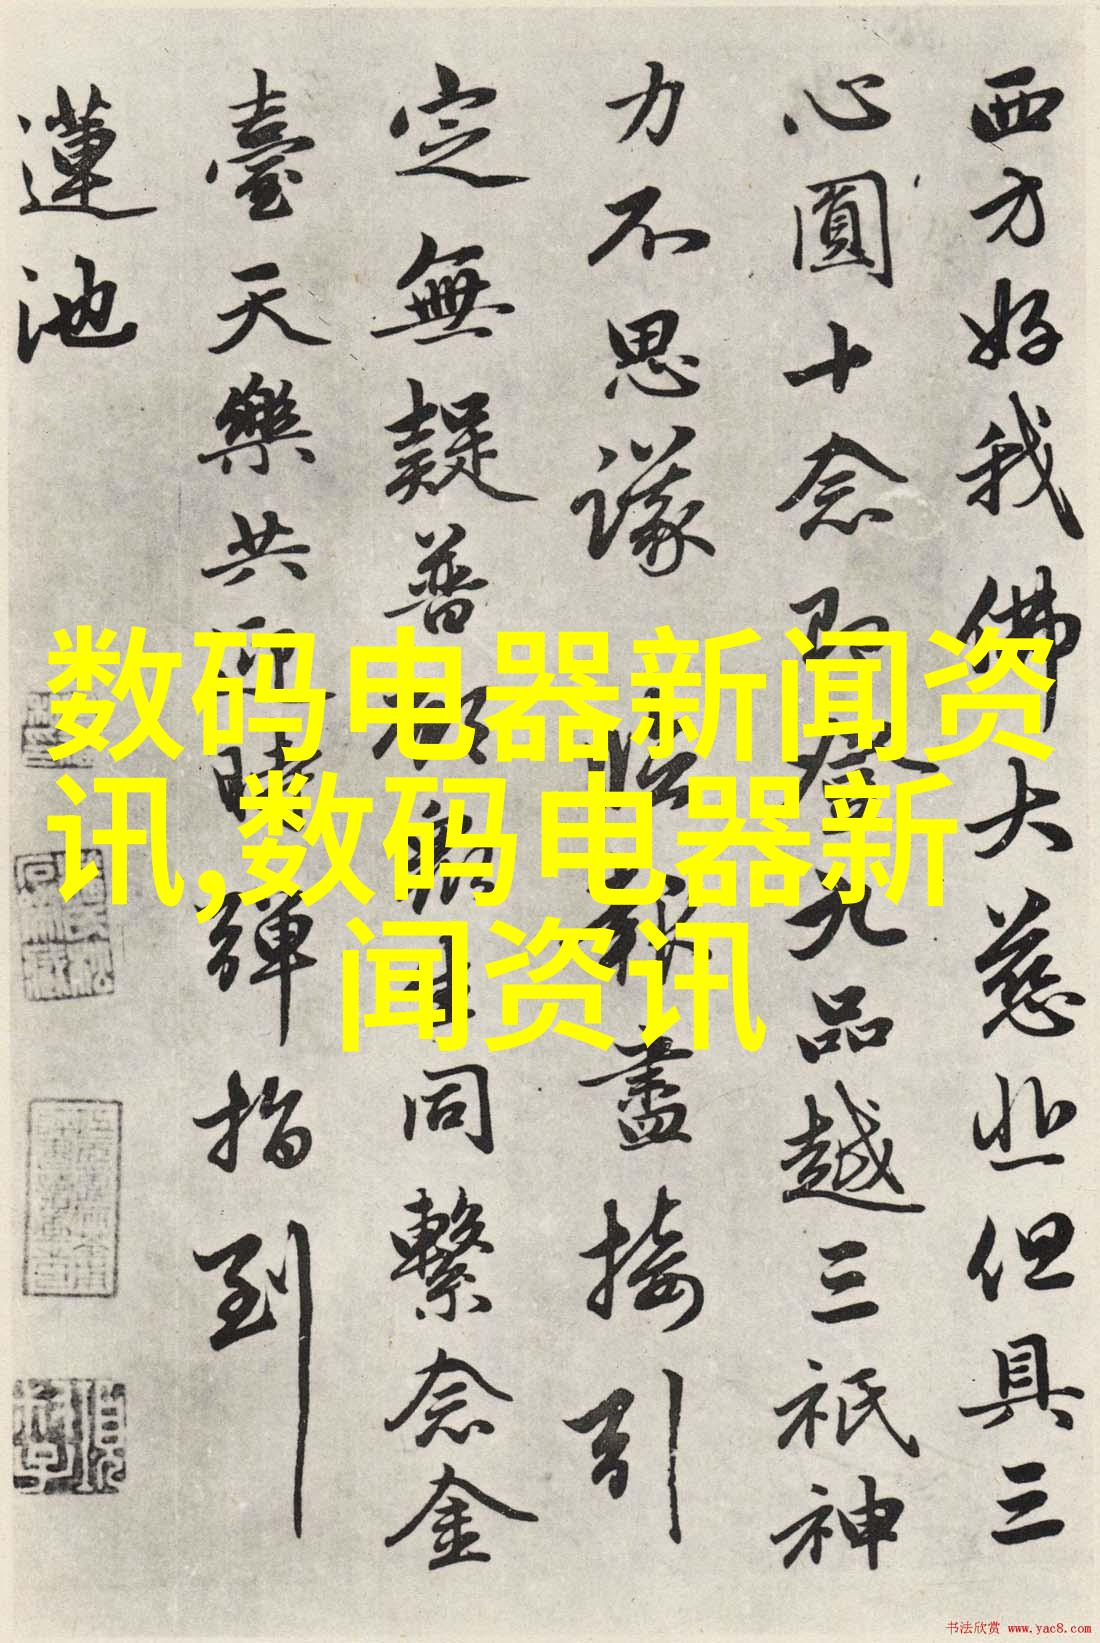 西方好我佛大慈悲但具三
心圓十念即登九品越三祇神
力不思議臨報盡接引
定無疑普願眾生同繫念金
臺天樂共迎時彈指到
蓮池
数码电器新闻资
讯,数码电器新
闻资讯
书法欣赏 www.yac8.com